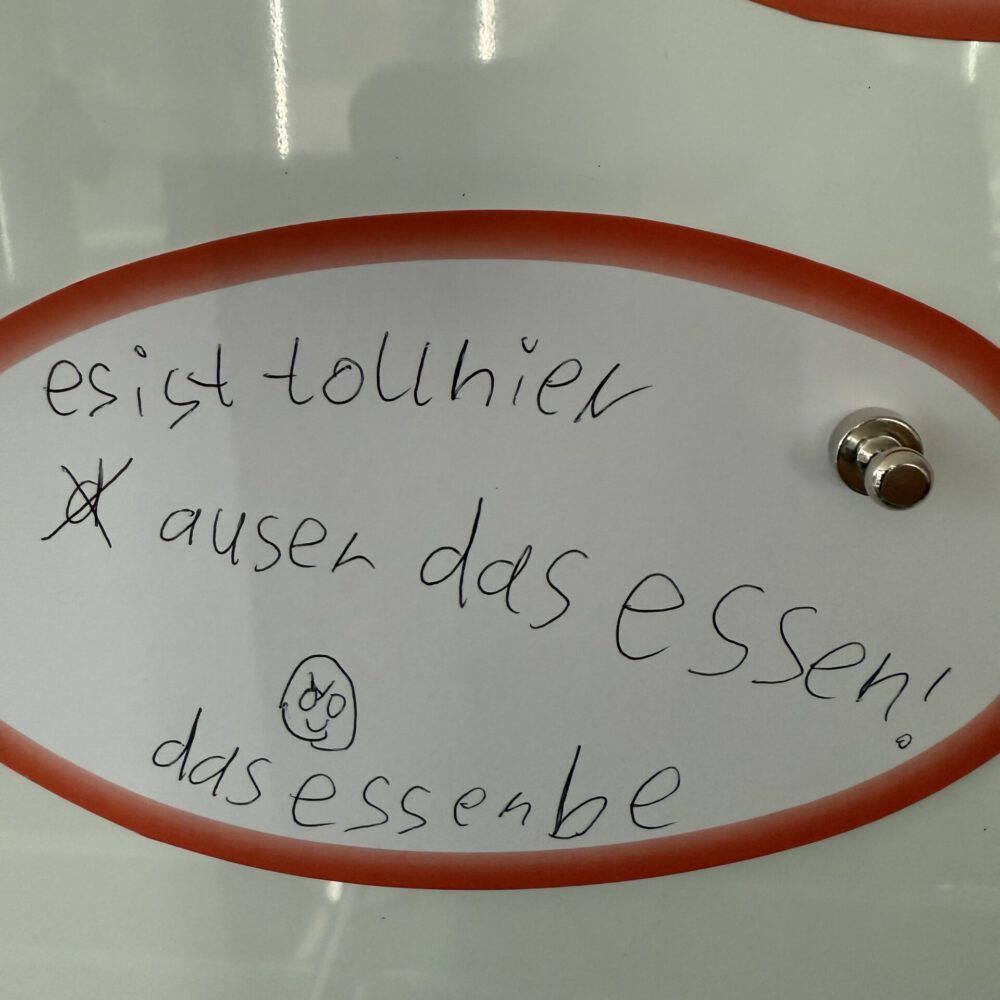 es ist toll hier
auser das essen!
das essen be